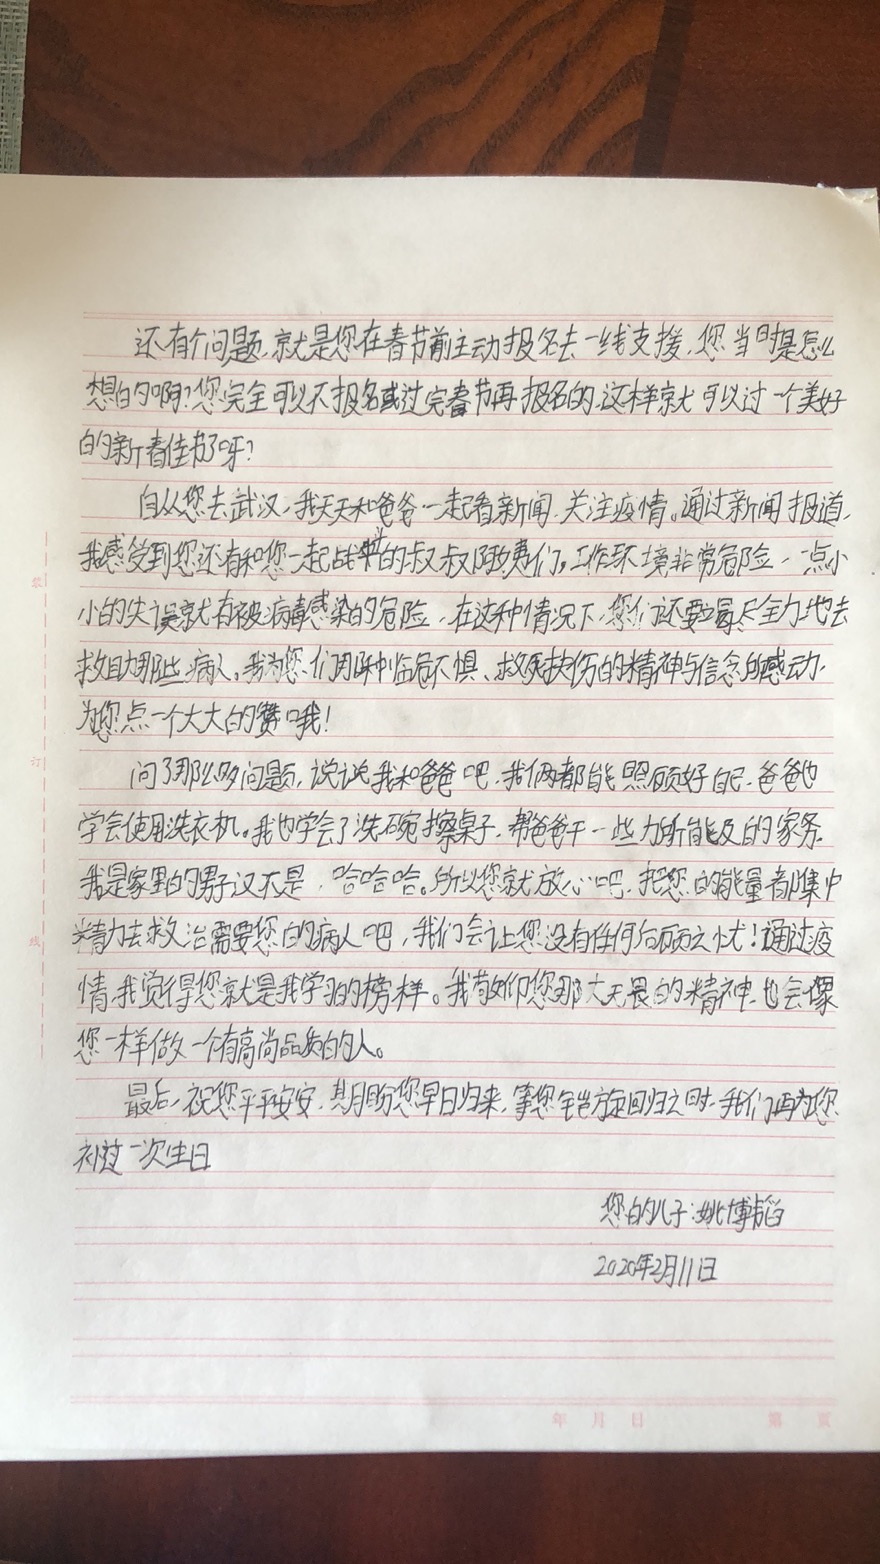 还有个问题,就是您在春节前主动报名去一线支援,您当时是怎么
想的啊?您完全可以不报名或过完春节再报名的,这样就可以过一个美好
的新春佳节了呀?
自从您去武汉,我天天和爸爸一起看新闻,关注疫情。通过新闻报道,
我感受到您还有和您一起战斗的叔叔阿姨们,工作环境非常危险,一点小
小的失误就有被病毒感染的危险,在这种情况下,您们还要竭尽全力地去
救助那些病人。我为您们那种临危不惧、救死扶伤的精神与信念的感动,
为您点一个大大的赞哦!
问了那么多问题,说说我和爸爸吧,我俩都能照顾好自己,爸爸也
学会使用洗衣机。我也学会了洗碗擦桌子,帮爸爸干一些力所能及的家务,
我是家里的男子汉不是,哈哈哈。所以您就放心吧,把您的能量都集中
精力去救治需要您的病人吧,我们会让您没有任何后顾之忧!通过疫
情,我觉得您就是我学习的榜样。我敬仰您那大无畏的精神,也会像
您一样做一个有高尚品质的人。
最后,祝您平平安安,期盼您早日归来,等您铠旋回归之时,我们再为您
补过一次生日
您的儿子:姚博韬
2020年2月11日
裂
订
线
年 月 日 第 页